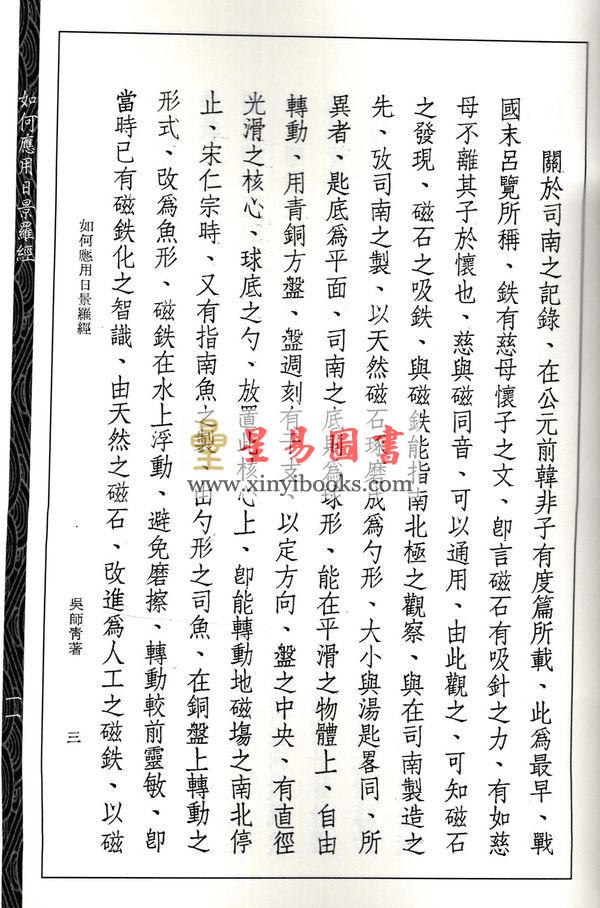 關於司南之記錄、在公元前韓非子有度篇所載、此為最早、戰
國末呂覽所稱、鉄有慈母懷子之文、卽言磁石有吸針之力、有如慈
母不離其子於懷也、慈與磁同音、可以通用、由此觀之、可知磁石
之發現、磁石之吸鉄、與磁鉄能指南北極之觀察、與在司南製造之
先、攷司南之製、以天然磁石琢磨成為勺形、大小與湯匙畧同、所
異者、匙底為平面、司南之底則為球形、能在平滑之物體上、自由
轉動、用青銅方盤、盤週刻有干支、以定方向、盤之中央、有直徑
光滑之核心、球底之勺、放置此核心上、卽能轉動地磁場之南北停
止、宋仁宗時、又有指南魚之製、由勺形之司魚、在銅盤上轉動之
形式、改為魚形、磁鉄在水上浮動、避免磨擦、轉動較前靈敏、卽
當時已有磁鉄化之智識、由天然之磁石、改進為人工之磁鉄、以磁
如何應用日景羅經
吳師青著
三
如何應用日景羅經
一一
星易圖書
www.xinyibooks.com